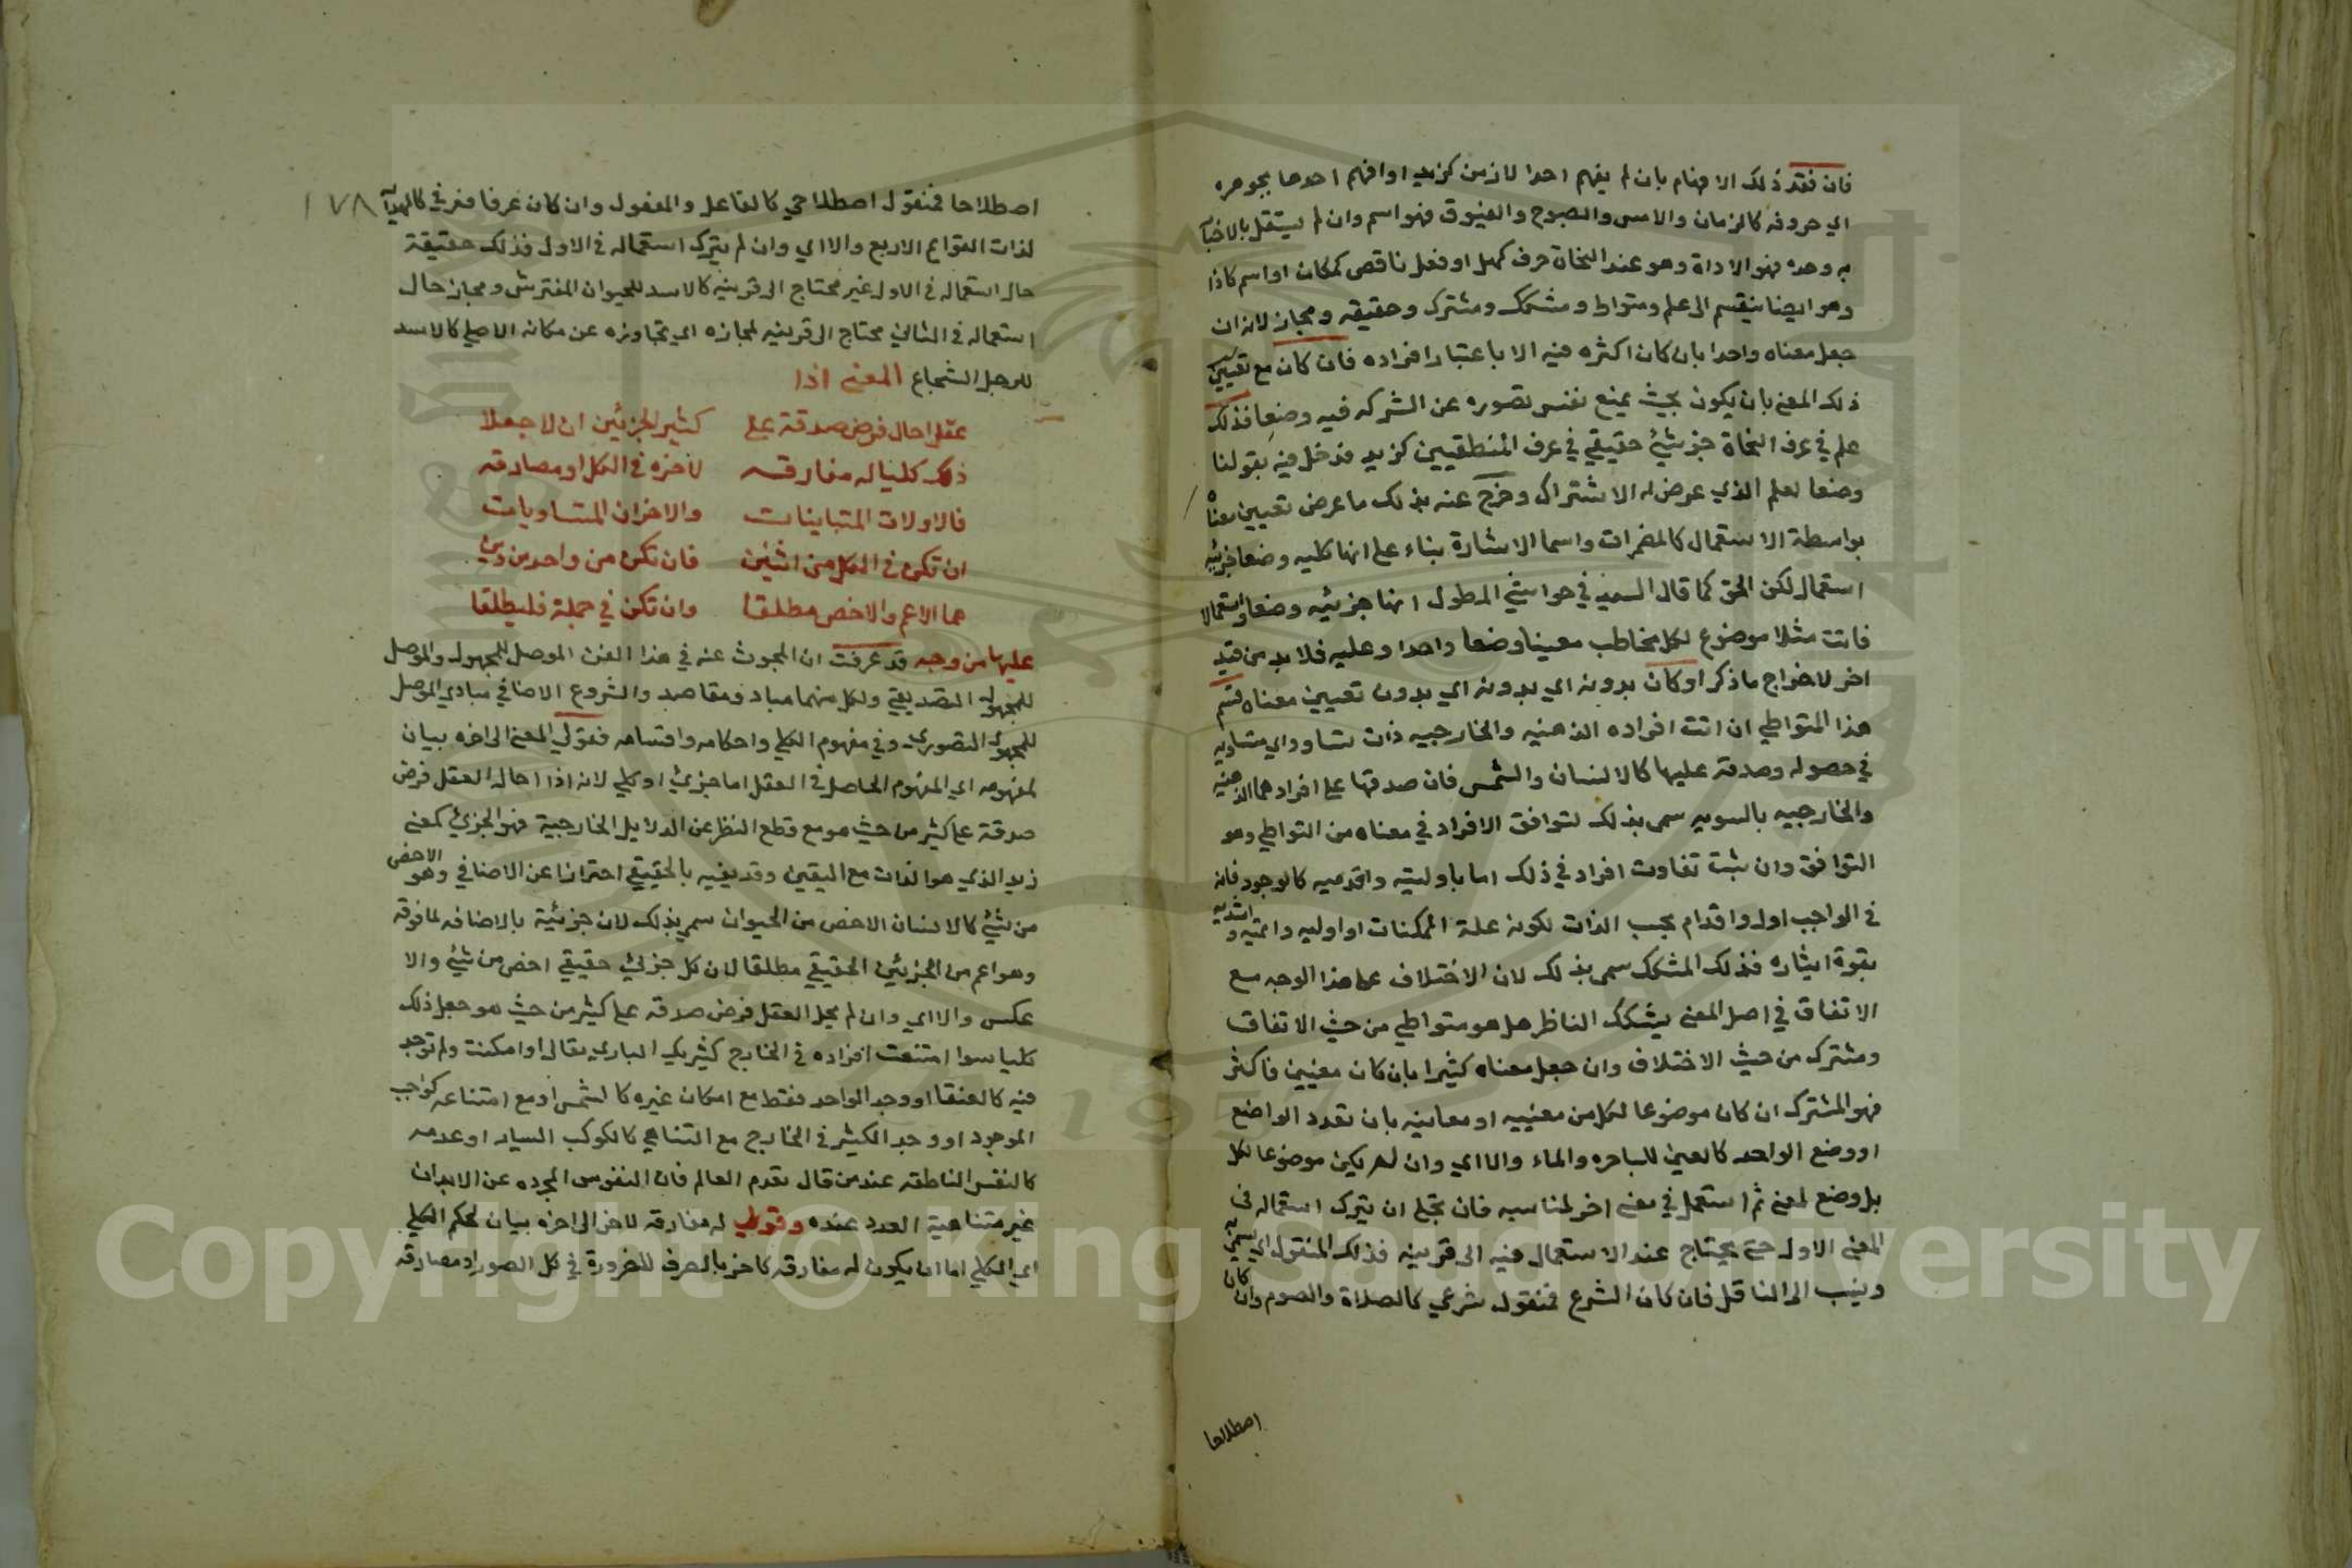 فان فقد ذلك الافهام بان لم يفهم احدا لازمن كزيد او افهم احدها بجوهره
اي حروفه كالزمان والامس والصبوح والغبوق فهو اسم وان لم يستقل بالاخبار
به وحده فهو الاداة وهو عند النحاة حرف كهل او فعل ناقص كمكان او اسم كاذا
وهو ايضا ينقسم الى علم ومتواط ومشكك ومشترك وحقيقه ومجاز لانه ان
جعل معناه واحدا بان كان اكثره فيه الا باعتبار افراده فان كان مع تعيين
ذلك المعنى بان يكون بحيث يمنع نفس تصوره عن الشركه فيه وضعا فذلك
علم في عرف النحاة جزئي حقيقي في عرف المنطقيين كزيد فدخل فيه بقولنا
وضعا لعلم الذي عرض له الاشتراك وخرج عنه بذلك ما عرض تعيين معناه
بواسطة الاستعمال كالمضمرات واسما الاشارة بناء على انها كليه وضعا جزئيه
استعمال لكن الحق كما قال السيد في حواشي المطول انها جزئيه وضعا واستعمالا
فانت مثلا موضوع لكل مخاطب معينا وضعا واحدا وعليه فلا بد من قيد
اخر لاخراج ما ذكر او كان بدونه اي بدونه اي بدون تعيين معناه قسم
هذا المتواطي ان اتت افراده الذهنيه والخارجيه ذات تساو اي متساويه
في حصوله وصدقه عليها كالانسان والشمس فان صدقها على افرادهما الذهنيه
والخارجيه بالسويه سمى بذلك لتوافق الافراد في معناه من التواطي وهو
التوافق وان ثبت تفاوت افراد في ذلك اما باوليته واقدميه كالوجود فانه
في الواجب اول واقدام بحسب الذات لكونه علة الممكنات او اوليه واتميه واشديه
بقوة اثاره فذلك المشكك سمى بذلك لان الاختلاف على هذا الوجه مع
الاتفاق في اصل المعنى يشكك الناظر هل هو متواطي من حيث الاتفاق
ومشترك من حيث الاختلاف وان جعل معناه كثيرا بان كان معنيين فاكثر
فهو المشترك ان كان موضوعا لكل من معنييه او معانيه بان تعدد الواضع
او وضع الواحد كالعين للباصره والماء والا اي وان لم يكن موضوعا لكل
بل وضع لمعنى ثم استعمل في معنى اخر لمناسبه فان تجلى ان يترك استعماله في
المعنى الاول حتى يحتاج عند الاستعمال فيه الى قرينه فذلك المنقول اي يسمى به
وينسب الى الناقل فان كان الشرع فمنقول شرعي كالصلاة والصوم وان كان
اصطلاحا
١٧٨
اصطلاحا فمنقول اصطلاحي كالفاعل والمفعول وان كان عرفا فعرفي كالدابه
لذات القوائم الاربع والا اي وان لم يترك استعماله في الاول فذلك حقيقة
حال استعماله في الاول غير محتاج الى قرينه كالاسد للحيوان المفترس ومجاز حال
استعماله في الثاني محتاج الى قرينه لمجازه اي تجاوزه عن مكانه الاصلي كالاسد
للرجل الشجاع المعنى اذا
عقل احال فرض صدقة على كثير الجزئين ان لا جعلا
ذلك كليا له مفارقه لاخره في الكل او مصادقه
فالاولات المتباينات والاخران المتساويات
ان تكن في الكل من اثنين فان تكن من واحد من ذين
هما الاعم والاخص مطلقا وان تكن في جملة فليطلقا
عليها من وجه قد عرفت ان المبحوث عنه في هذا الفن الموصل للمجهول والموصل
للمجهول التصديقي ولكل منهما مباد ومقاصد والشروع الاضافي مبادي الموصل
للمجهول التصوري وفي مفهوم الكلي واحكامه واقسامه فقولي المعنى الى اخره بيان
لمفهومه اي المفهوم الحاصل في العقل اما جزئي او كلي لانه اذا احال العقل فرض
صدقة على كثير من حيث هو مع قطع النظر عن الدلايل الخارجية فهو الجزئي كمعنى
زيد الذي هو الذات مع اليقين وقد يقيد بالحقيقي احترازا عن الاضافي وهو الاخص
من شئ كالانسان الاخص من الحيوان سمى بذلك لان جزئيته بالاضافه لما فوقه
وهو اعم من الجزئي الحقيقي مطلقا لان كل جزئي حقيقي اخص من شئ والا
عكس والا اي وان لم يحل العقل فرض صدقه على كثير من حيث هو جعل ذلك
كليا سوا امتنعت افراده في الخارج كشريك الباري تعالى او امكنت ولم توجد
فيه كالعنقا او وجد الواحد فقط مع امكان غيره كالشمس او مع امتناعه كواجب
الموجود او وجد الكثير في الخارج مع التناهي كالكوكب السيار او عدمه
كالنفس الناطقه عند من قال بقدم العالم فان النفوس المجرده عن الابدان
غير متناهية العدد عنده وقولي له مفارقه لاخر الى اخره بيان لحكم الكلي
اي الكلي اما ان يكون له مفارقه كاخر بالصرف للضرورة في كل الصور او مصادقه
Copyright © King Saud University
1957